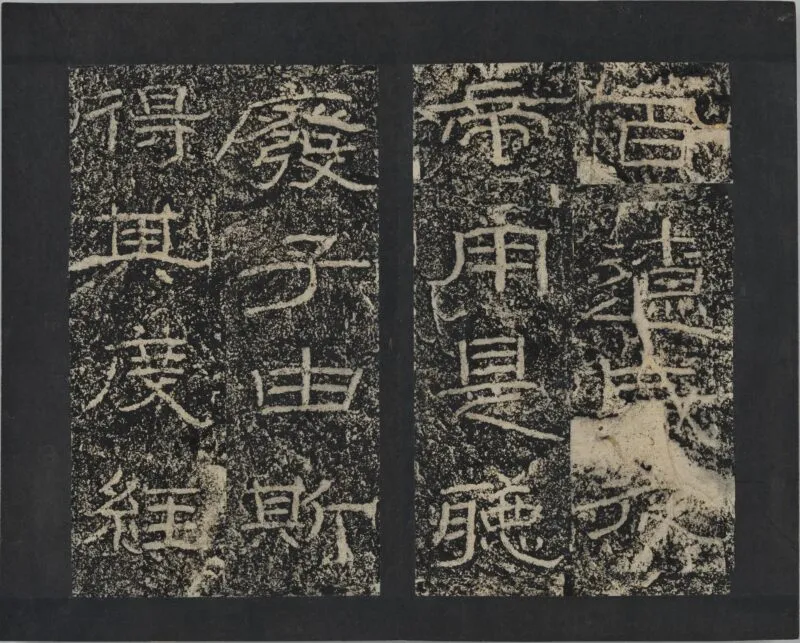 百遼咸從
帝用是聽
廢子由斯
得其度經